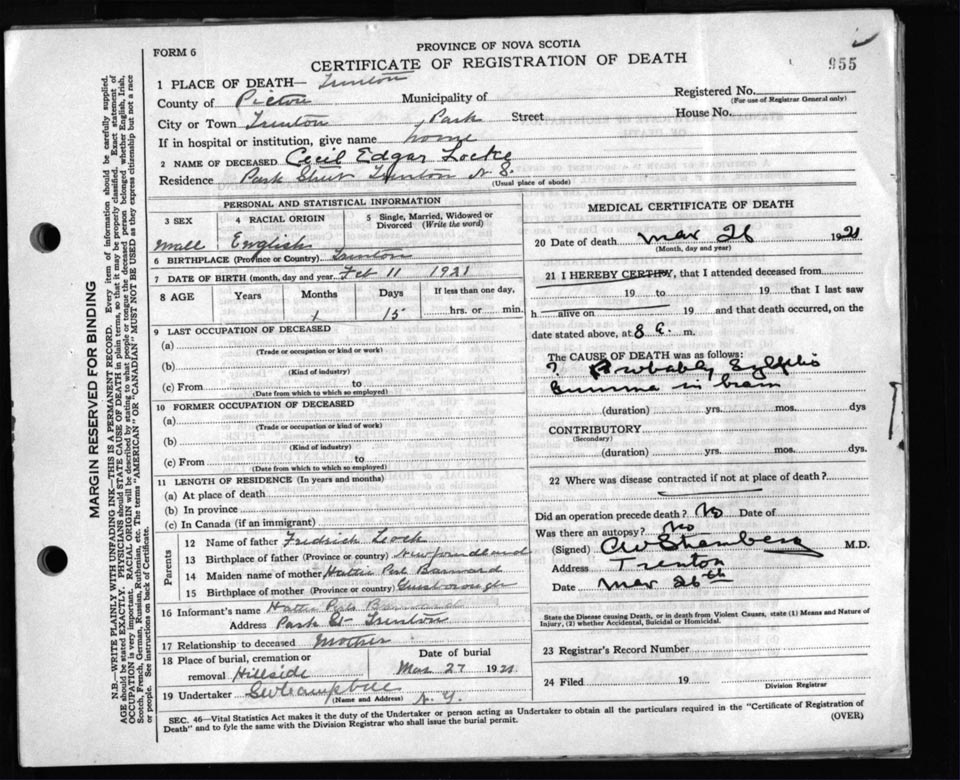 FORM 6
PROVINCE OF NOVA SCOTIA
CERTIFICATE OF REGISTRATION OF DEATH
955
1 PLACE OF DEATH— Trenton
County of Pictou Municipality of
Registered No.
(For use of Registrar General only)
City or Town Trenton, Park Street House No.
If in hospital or institution, give name home
2 NAME OF DECEASED Cecil Edgar Locke
Residence Park Street Trenton N.S.
(Usual place of abode)
PERSONAL AND STATISTICAL INFORMATION
3 SEX 4 RACIAL ORIGIN 5 Single, Married, Widowed or Divorced (Write the word)
Male English
6 BIRTHPLACE (Province or Country) Trenton
7 DATE OF BIRTH (month, day and year) Feb 11 1921
8 AGE Years Months Days If less than one day,
1 15 hrs. or min.
9 LAST OCCUPATION OF DECEASED
(a)
(Trade or occupation or kind or work)
(b)
(Kind of industry)
(c) From to
(Date from which to which so employed)
10 FORMER OCCUPATION OF DECEASED
(a)
(Trade or occupation or kind of work)
(b)
(Kind of industry)
(c) From to
(Date from which to which so employed)
11 LENGTH OF RESIDENCE (In years and months)
(a) At place of death
(b) In province
(c) In Canada (if an immigrant)
Parents
12 Name of father Fredrick Lock
13 Birthplace of father (Province or country) Newfoundland
14 Maiden name of mother Hattie Barnard
15 Birthplace of mother (Province or country)
16 Informant's name Hattie
Address Park St Trenton
17 Relationship to deceased Mother
18 Place of burial, cremation or removal Hillside
Date of burial
Mar 27 1921
19 Undertaker
(Name and Address)
MEDICAL CERTIFICATE OF DEATH
20 Date of death Mar 26 1921
(Month, day and year)
21 I HEREBY CERTIFY, that I attended deceased from
19 to 19 that I last saw
h alive on 19 and that death occurred, on the
date stated above, at 8 a. m.
The CAUSE OF DEATH was as follows:
? Probably Syphilis
Gumma in brain
(duration) yrs. mos. dys
CONTRIBUTORY
(Secondary)
(duration) yrs. mos. dys.
22 Where was disease contracted if not at place of death?
Did an operation precede death? No Date of
Was there an autopsy? No
(Signed) M.D.
Address Trenton
Date Mar 26th
State the Disease causing Death, or in death from Violent Causes, state (1) Means and Nature of Injury, (2) whether Accidental, Suicidal or Homicidal.
23 Registrar's Record Number
24 Filed 19
Division Registrar
SEC. 46—Vital Statistics Act makes it the duty of the Undertaker or person acting as Undertaker to obtain all the particulars required in the "Certificate of Registration of
Death" and to fyle the same with the Division Registrar who shall issue the burial permit.
(OVER)
MARGIN RESERVED FOR BINDING
N.B.—WRITE PLAINLY WITH UNFADING INK—THIS IS A PERMANENT RECORD. Every item of information should be carefully supplied.
AGE should be stated EXACTLY. PHYSICIANS should STATE CAUSE OF DEATH in plain terms, so that it may be properly classified. Exact statement of
OCCUPATION is very important. RACIAL ORIGIN will be described by stating to what people or tongue the deceased person belonged whether English, Irish,
Scotch, French, German, Russian, Ruthenian, etc. The terms "AMERICAN" OR "CANADIAN" MUST NOT BE USED as they express citizenship but not a race
or people. See instructions on back of Certificate.